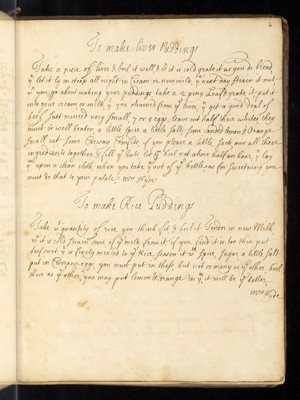 6
To make liver Puddings
Take a piece of liver & boil it well & wn it is cold grate it as you do bread
yn let it ly in steep all night in Cream or new milk, yn next day strain it out
yn you go about making your puddings take a 2 peny Loaf & grate it put it
into your cream or milk yt you strained from ye liver, yn get a good deal of
beef suet minced very small, 7 or 8 eggs, leave out half their whites they
must be well beaten, a little spice a little salt some candied Lemon & Orange
small cut some Carraway Comfits if you please a little sack, mix all these
ingredients together & fill ye Guts let ym boil not above half an hour, yn lay
ym upon a clean cloth when you take ym out of ye kettle, as for sweetning you
must do that to your palate. Mrs Hyde.
To make Rice Puddings
Take ye quantity of rice you think fit & boil it Tender in new Milk
wn it is cold strain some of ye milk from it if you find it is too thin put
beef suet yt is finely minced to ye Rice, season it wth spice, sugar a little salt
put in Currans, eggs you must put in these but not so many as ye other, boil
them as ye other, you may put lemon & orange in ym, it will be ye better.
Mrs Hyde.